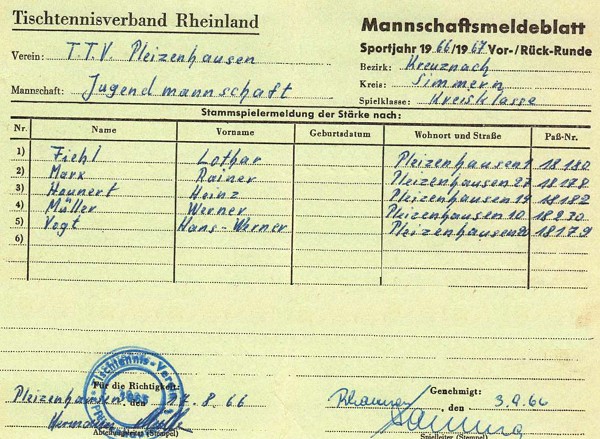 Tischtennisverband Rheinland
Mannschaftsmeldeblatt
Sportjahr 1966/1967 Vor-/Rück-Runde
Verein: T.T.V Pleizenhausen
Bezirk: Kreuznach
Kreis: Simmern
Mannschaft: Jugendmannschaft
Spielklasse: Kreisklasse
Stammspielermeldung der Stärke nach:
Nr. Name Vorname Geburtsdatum Wohnort und Straße Paß-Nr.
1) Fiehl Lothar Pleizenhausen 1 18180
2) Marx Rainer Pleizenhausen 27 18178
3) Haunert Heinz Pleizenhausen 19 18182
4) Müller Werner Pleizenhausen 10 18230
5) Vogt Hans-Werner Pleizenhausen 18179
6)
Tischtennis-
Für die Richtigkeit:
Genehmigt:
Pleizenhausen, den 17.8.66
, den 3.9.66
Abteilungsleiter (Stempel)
Spielleiter (Stempel)